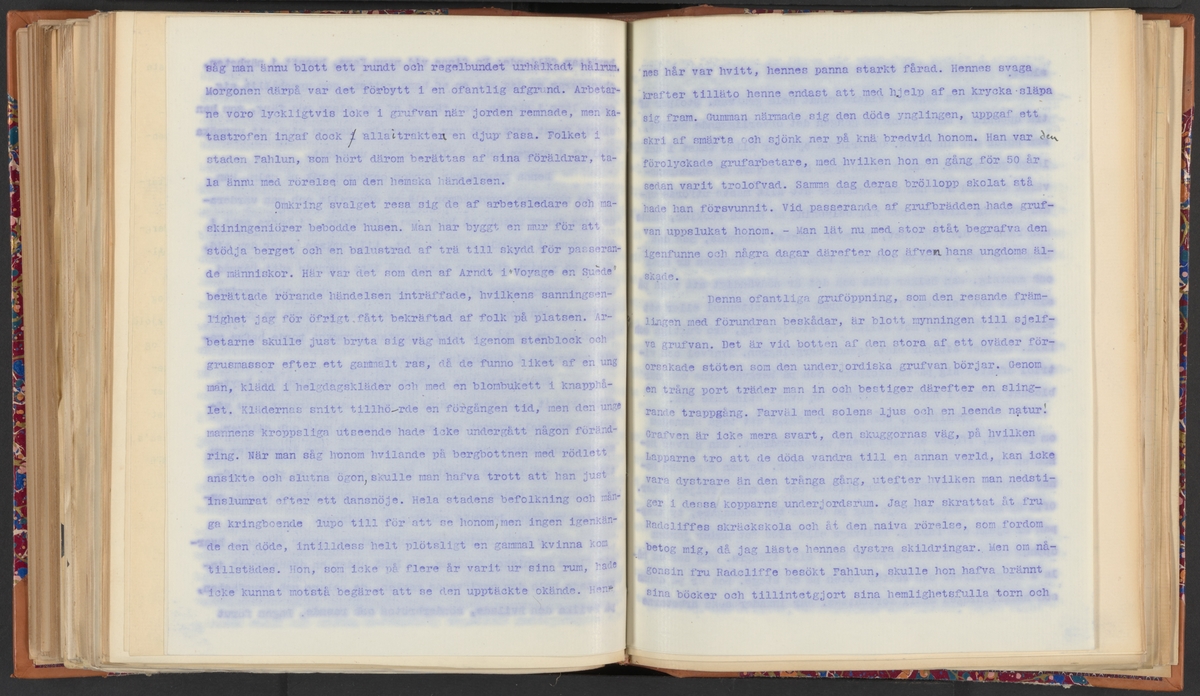 såg man ännu blott ett rundt och regelbundet urhålkadt hålrum.
Morgonen därpå var det förbytt i en ofantlig afgrund. Arbetar-
ne voro lyckligtvis icke i grufvan när jorden remnade, men ka-
tastrofen ingaf dock allsitrakten en djup fasa. Folket i
staden Fahlun, som hört därom berättas af sina föräldrar, ta-
la ännu med rörelse om den hemska händelsen.
Omkring svalget resa sig de af arbetsledare och ma-
skiningeniörer bebodde husen. Man har byggt en mur för att
stödja berget och en balustrad af trä till skydd för passeran-
de människor. Här var det som den af Arndt i "Voyage en Suède"
berättade rörande händelsen inträffade, hvilkens sanningsen-
lighet jag för öfrigt fått bekräftad af folk på platsen. Ar-
betarne skulle just bryta sig väg midt igenom stenblock och
grusmassor efter ett gammalt ras, då de funno liket af en ung
man, klädd i helgdagskläder och med en blombukett i knapphå-
let. Klädernas snitt tillhörde en förgången tid, men den unge
mannens kroppsliga utseende hade icke undergått någon föränd-
ring. När man såg honom hvilande på bergbottnen med rödlett
ansikte och slutna ögon, skulle man hafva trott att han just
inslumrat efter ett dansnöje. Hela stadens befolkning och mån-
ga kringboende lupo till för att se honom, men ingen igenkän-
de den döde, intilldess helt plötsligt en gammal kvinna kom
tillstädes. Hon, som icke på flere år varit ur sina rum, hade
icke kunnat motstå begäret att se den upptäckte okände. Hen-
nes hår var hvitt, hennes panna starkt fårad. Hennes svaga
krafter tilläto henne endast att med hjelp af en krycka släpa
sig fram. Gumman närmade sig den döde ynglingen, uppgaf ett
skri af smärta och sjönk ner på knä bredvid honom. Han var den
förolyckade grufarbetare, med hvilken hon en gång för 50 år
sedan varit trolofvad. Samma dag deras bröllopp skolat stå
hade han försvunnit. Vid passerande af grufbrädden hade gruf-
van uppslukat honom. - Man lät nu med stor ståt begrafva den
igenfunne och några dagar därefter dog äfven hans ungdoms äl-
skade.
Denna ofantliga gruföppning, som den resande främ-
lingen med förundran beskådar, är blott mynningen till sjelf-
va grufvan. Det är vid botten af den stora af ett oväder för-
orsakade stöten som den underjordiska grufvan börjar. Genom
en trång port träder man in och bestiger därefter en sling-
rande trappgång. Farväl med solens ljus och en leende natur!
Grafven är icke mera svart, den skuggornas väg, på hvilken
Lapparne tro att de döda vandra till en annan verld, kan icke
vara dystrare än den trånga gång, utefter hvilken man nedsti-
ger i dessa kopparns underjordsrum. Jag har skrattat åt fru
Radcliffes skräckskola och åt den naiva rörelse, som fordom
betog mig, då jag läste hennes dystra skildringar. Men om nå-
gonsin fru Radcliffe besökt Fahlun, skulle hon hafva brännt
sina böcker och tillintetgjort sina hemlighetsfulla torn och